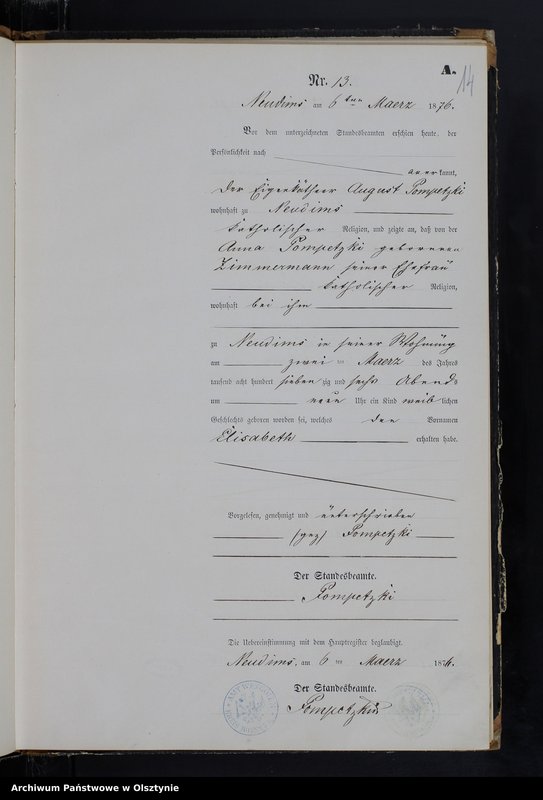 A.
14
Nr. 13.
Neudims am 6ten Maerz 1876.
Vor dem unterzeichneten Standesbeamten erschien heute, der
Persönlichkeit nach
anerkannt,
der Eigenkäthner August Pompetzki
wohnhaft zu Neudims
katholischer Religion, und zeigte an, daß von der
Anna Pompetzki geborenen
Zimmermann seiner Ehefrau
katholischer Religion,
wohnhaft bei ihm
zu Neudims in seiner Wohnung
am zwei ten Maerz des Jahres
tausend acht hundert sieben zig und sechs Abends
um neun Uhr ein Kind weiblichen
Geschlechts geboren worden sei, welches den Vornamen
Elisabeth erhalten habe.
Vorgelesen, genehmigt und unterschrieben
(gez) Pompetzki
Der Standesbeamte.
Pompetzki
Die Uebereinstimmung mit dem Hauptregister beglaubigt.
Neudims, am 6 ten Maerz 1876.
Der Standesbeamte.
Pompetzki
Archiwum Państwowe w Olsztynie